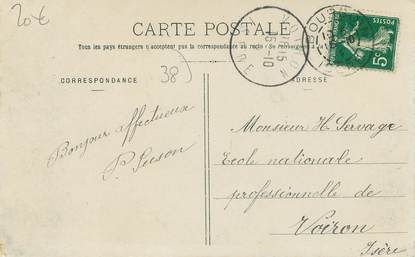 20€
CARTE POSTALE
Tous les pays étrangers n'acceptent pas la correspondance au recto (Se renseigner
38
CORRESPONDANCE
ADRESSE
VOIRON
ISÈRE
5c
Bonjour affectueux
Monsieur H. Servage
Ecole nationale
professionnelle de
Voiron
Isère